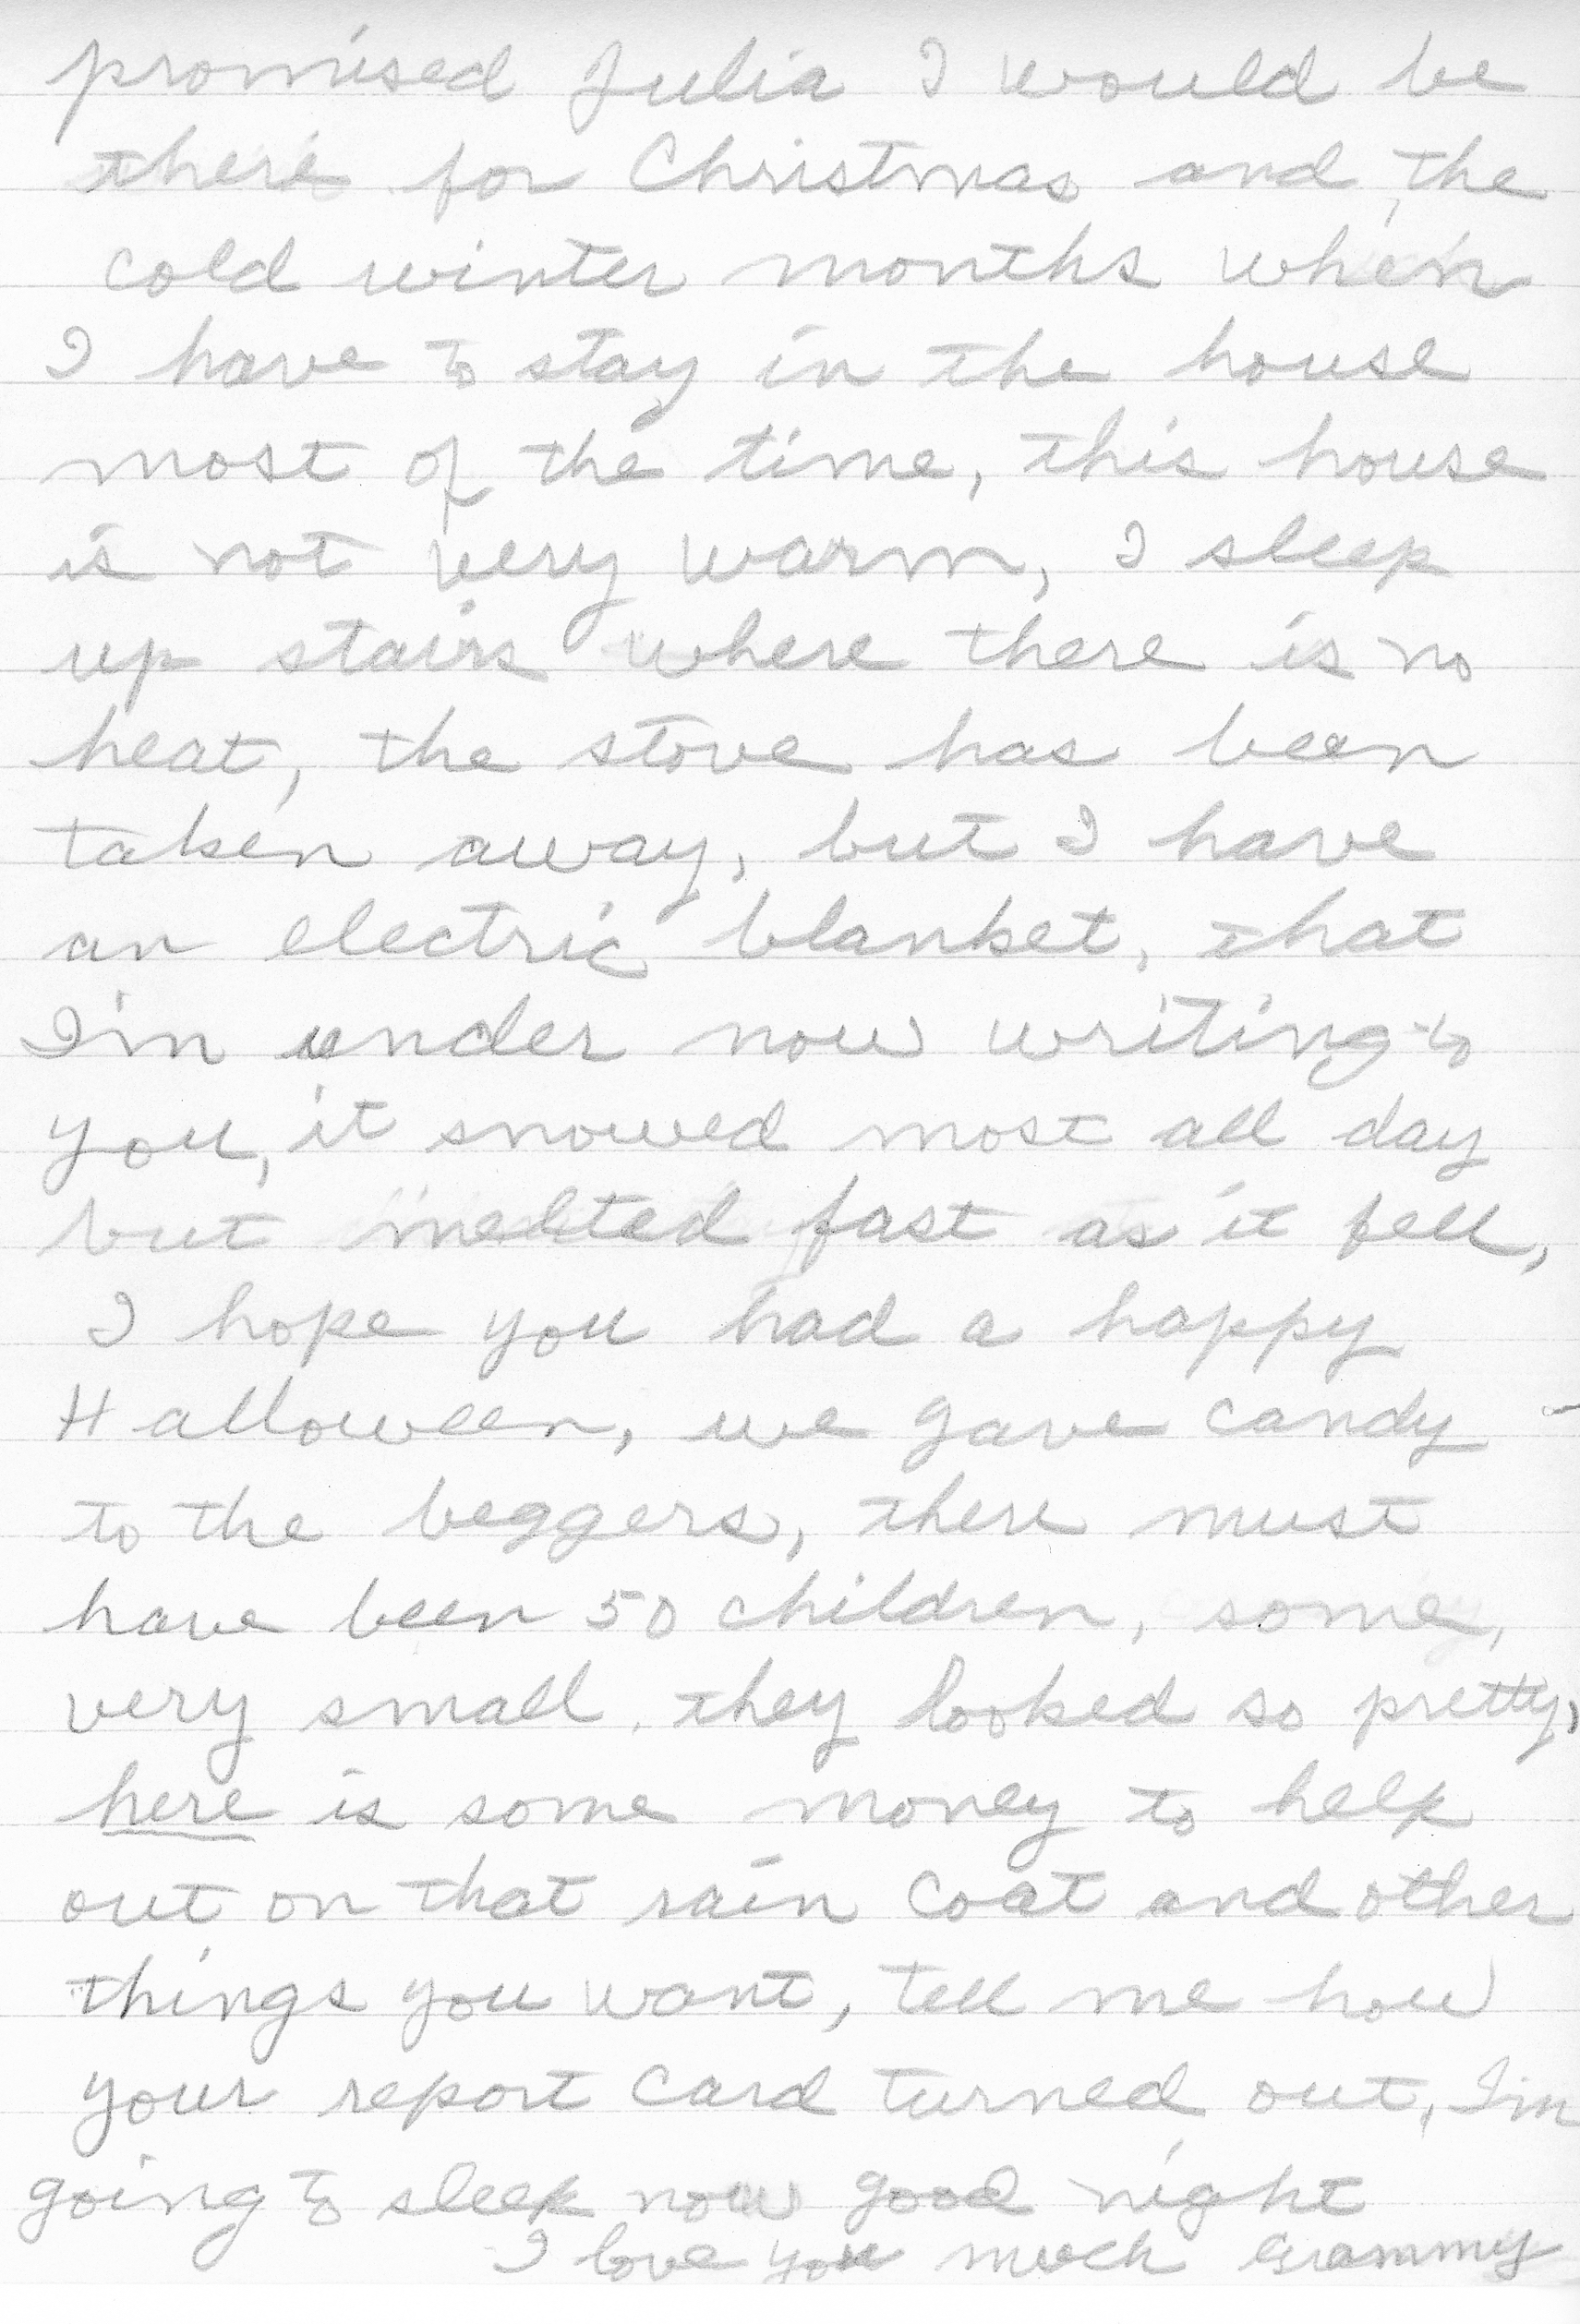 promised Julia I would be
there for Christmas and the
cold winter months when
I have to stay in the house
most of the time, this house
is not very warm, I sleep
up stairs where there is no
heat, the stove has been
taken away, but I have
an electric blanket, that
I'm under now writing to
you, it snowed most all day
but melted fast as it fell,
I hope you had a happy
Halloween, we gave candy
to the beggers, there must
have been 50 children, some,
very small, they looked so pretty,
here is some money to help
out on that rain coat and other
things you want, tell me how
your report card turned out, I'm
going to sleep now good night
I love you much Grammy